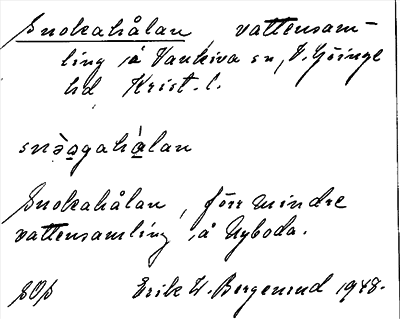 Snokahålan, vattensam-
ling å Vankiva sn, V. Göinge
hd Krist. l.
snò̀agahàlan
Snokahålan, förr mindre
vattensamling å Nyboda.
SOS Erik W. Bergenrud 1948.